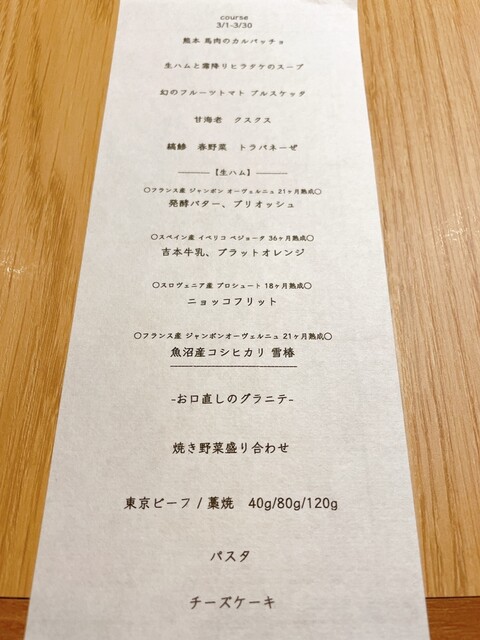 course
3/1-3/30
熊本 馬肉のカルパッチョ
生ハムと霜降りヒラタケのスープ
幻のフルーツトマト ブルスケッタ
甘海老　クスクス
縞鯵　春野菜　トラパネーゼ
【生ハム】
〇フランス産 ジャンボン オーヴェルニュ 21ヶ月熟成〇
発酵バター、ブリオッシュ
〇スペイン産 イベリコ ベジョータ 36ヶ月熟成〇
吉本牛乳、ブラットオレンジ
〇スロヴェニア産 プロシュート 18ヶ月熟成〇
ニョッコフリット
〇フランス産 ジャンボンオーヴェルニュ 21ヶ月熟成〇
魚沼産コシヒカリ 雪椿
-お口直しのグラニテ-
焼き野菜盛り合わせ
東京ビーフ / 藁焼　40g/80g/120g
パスタ
チーズケーキ